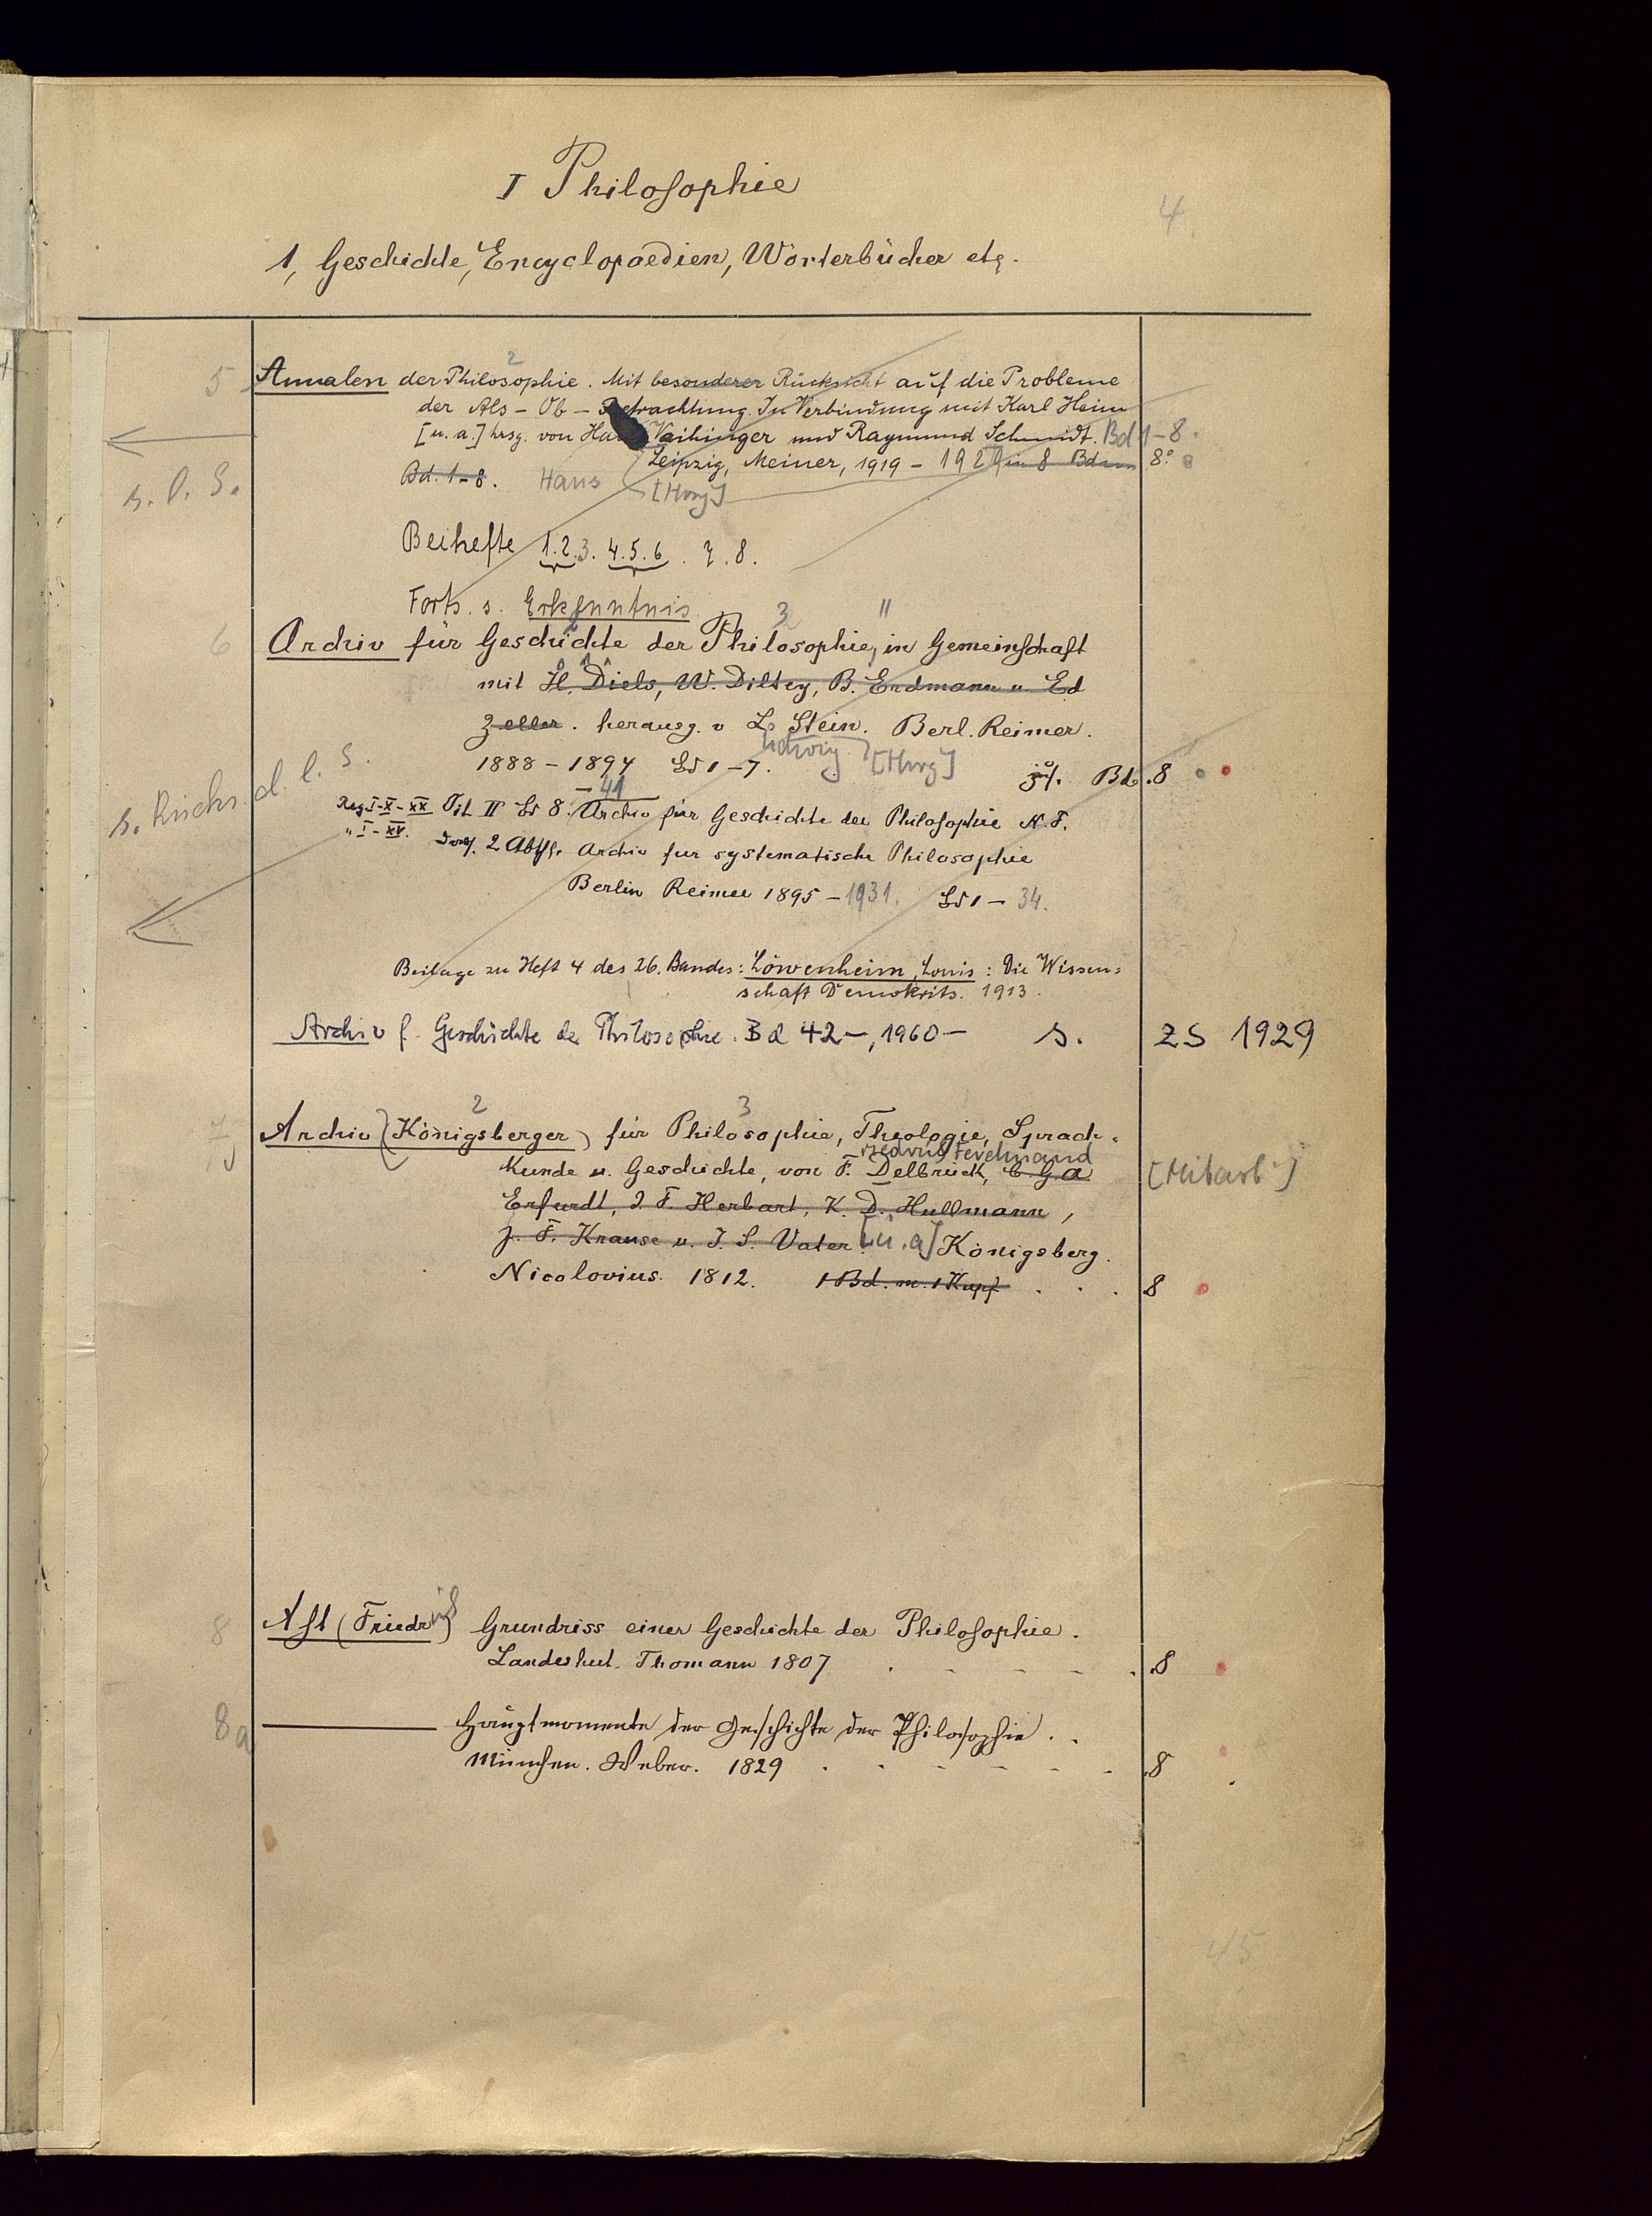 I Philosophie
4.
1, Geschichte, Encyclopaedien, Wörterbücher etc.
2
5 Annalen der Philosophie. Mit besonderer Rücksicht auf die Probleme
der Als-Ob-Betrachtung. In Verbindung mit Karl Heim
[u. a.] hrsg. von Hans Vaihinger und Raymund Schmidt. Bd 1-8.
Leipzig, Meiner, 1919 - 1929 in 8 Bden 8°
s. l. S.
Bd. 1-8. Hans [Hrsg]
Beihefte 1.2.3. 4.5.6. 7.8.
Forts. s. Erkenntnis.
3 "
6 Archiv für Geschichte der Philosophie, in Gemeinschaft
mit H. Diels, W. Diltey, B. Erdmann u Ed
Zeller. herausg. v L. Stein. Berl. Reimer.
Ludwig [Hrsg]
1888-1894 Bd 1-7. Bd. 8
-41
s. Rücks. d. l. S.
Reg. I-X-XX Tit. II Bd 8. Archiv für Geschichte der Philosophie N.F.
" I-XV. 2 Abth. Archiv für systematische Philosophie
Berlin Reimer 1895-1931. Bd 1-34.
Beilage zu Heft 4 des 26. Bandes: Löwenheim, Louis: Die Wissen=
schaft Demokrits. 1913.
Archiv f. Geschichte der Philosophie. Bd 42-, 1960- s. ZS 1929
2 3
7 Archiv (Königsberger) für Philosophie, Theologie, Sprach=
Ferdinand
kunde u. Geschichte, von F. Delbrück, C. G. A [Mitarb.]
Erfurdt, J. F. Herbart, K. D. Hullmann,
J. F. Krause u. J. S. Vater. [u. a] Königsberg.
Nicolovius. 1812. 1 Bd. m. 1 Kupf . . . 8
8 Ast (Friedrich) Grundriss einer Geschichte der Philosophie.
Landeshut. Thomann 1807 . - - - - . 8
8a ——— Hauptmomente der Geschichte der Philosophie. .
München. Weber. 1829 . . - - - - . 8
45